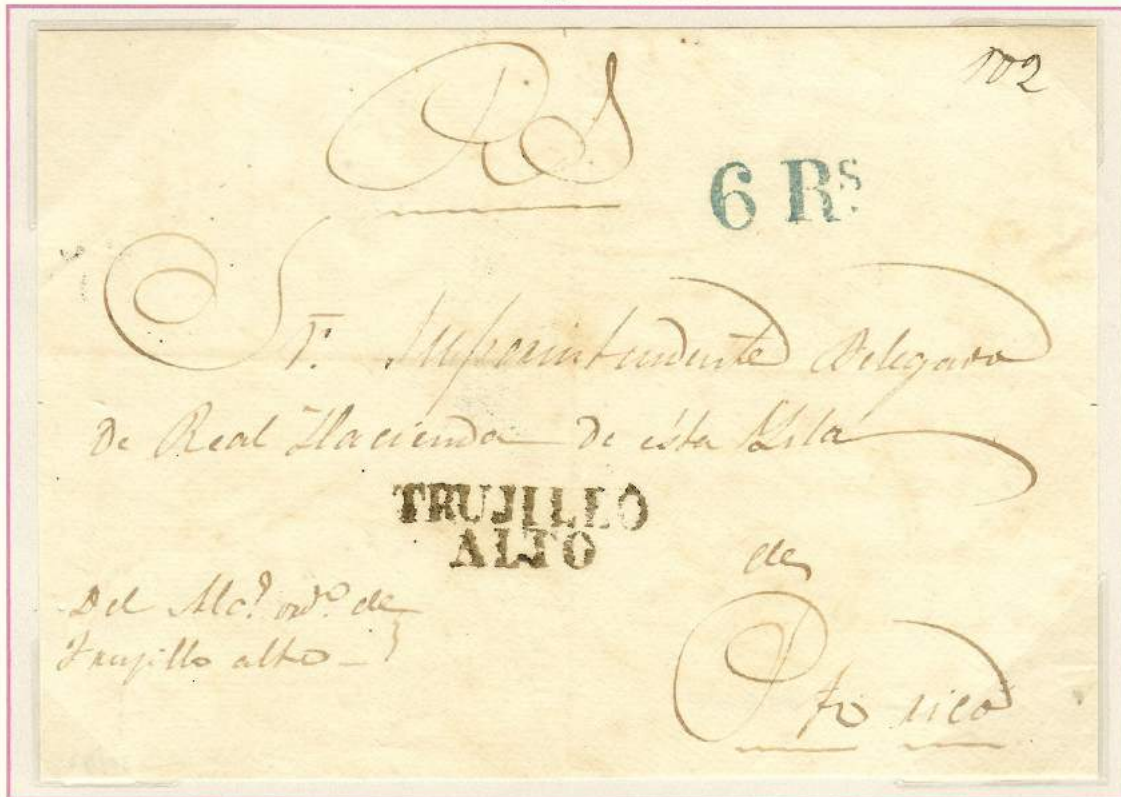 102
RS
6 Rs.
Sr. Superintendente Delegado
de Real Hacienda de ésta Ysla
TRUJILLO
ALTO
de
Del Alce. ordo. de
Trujillo alto
Pto rico